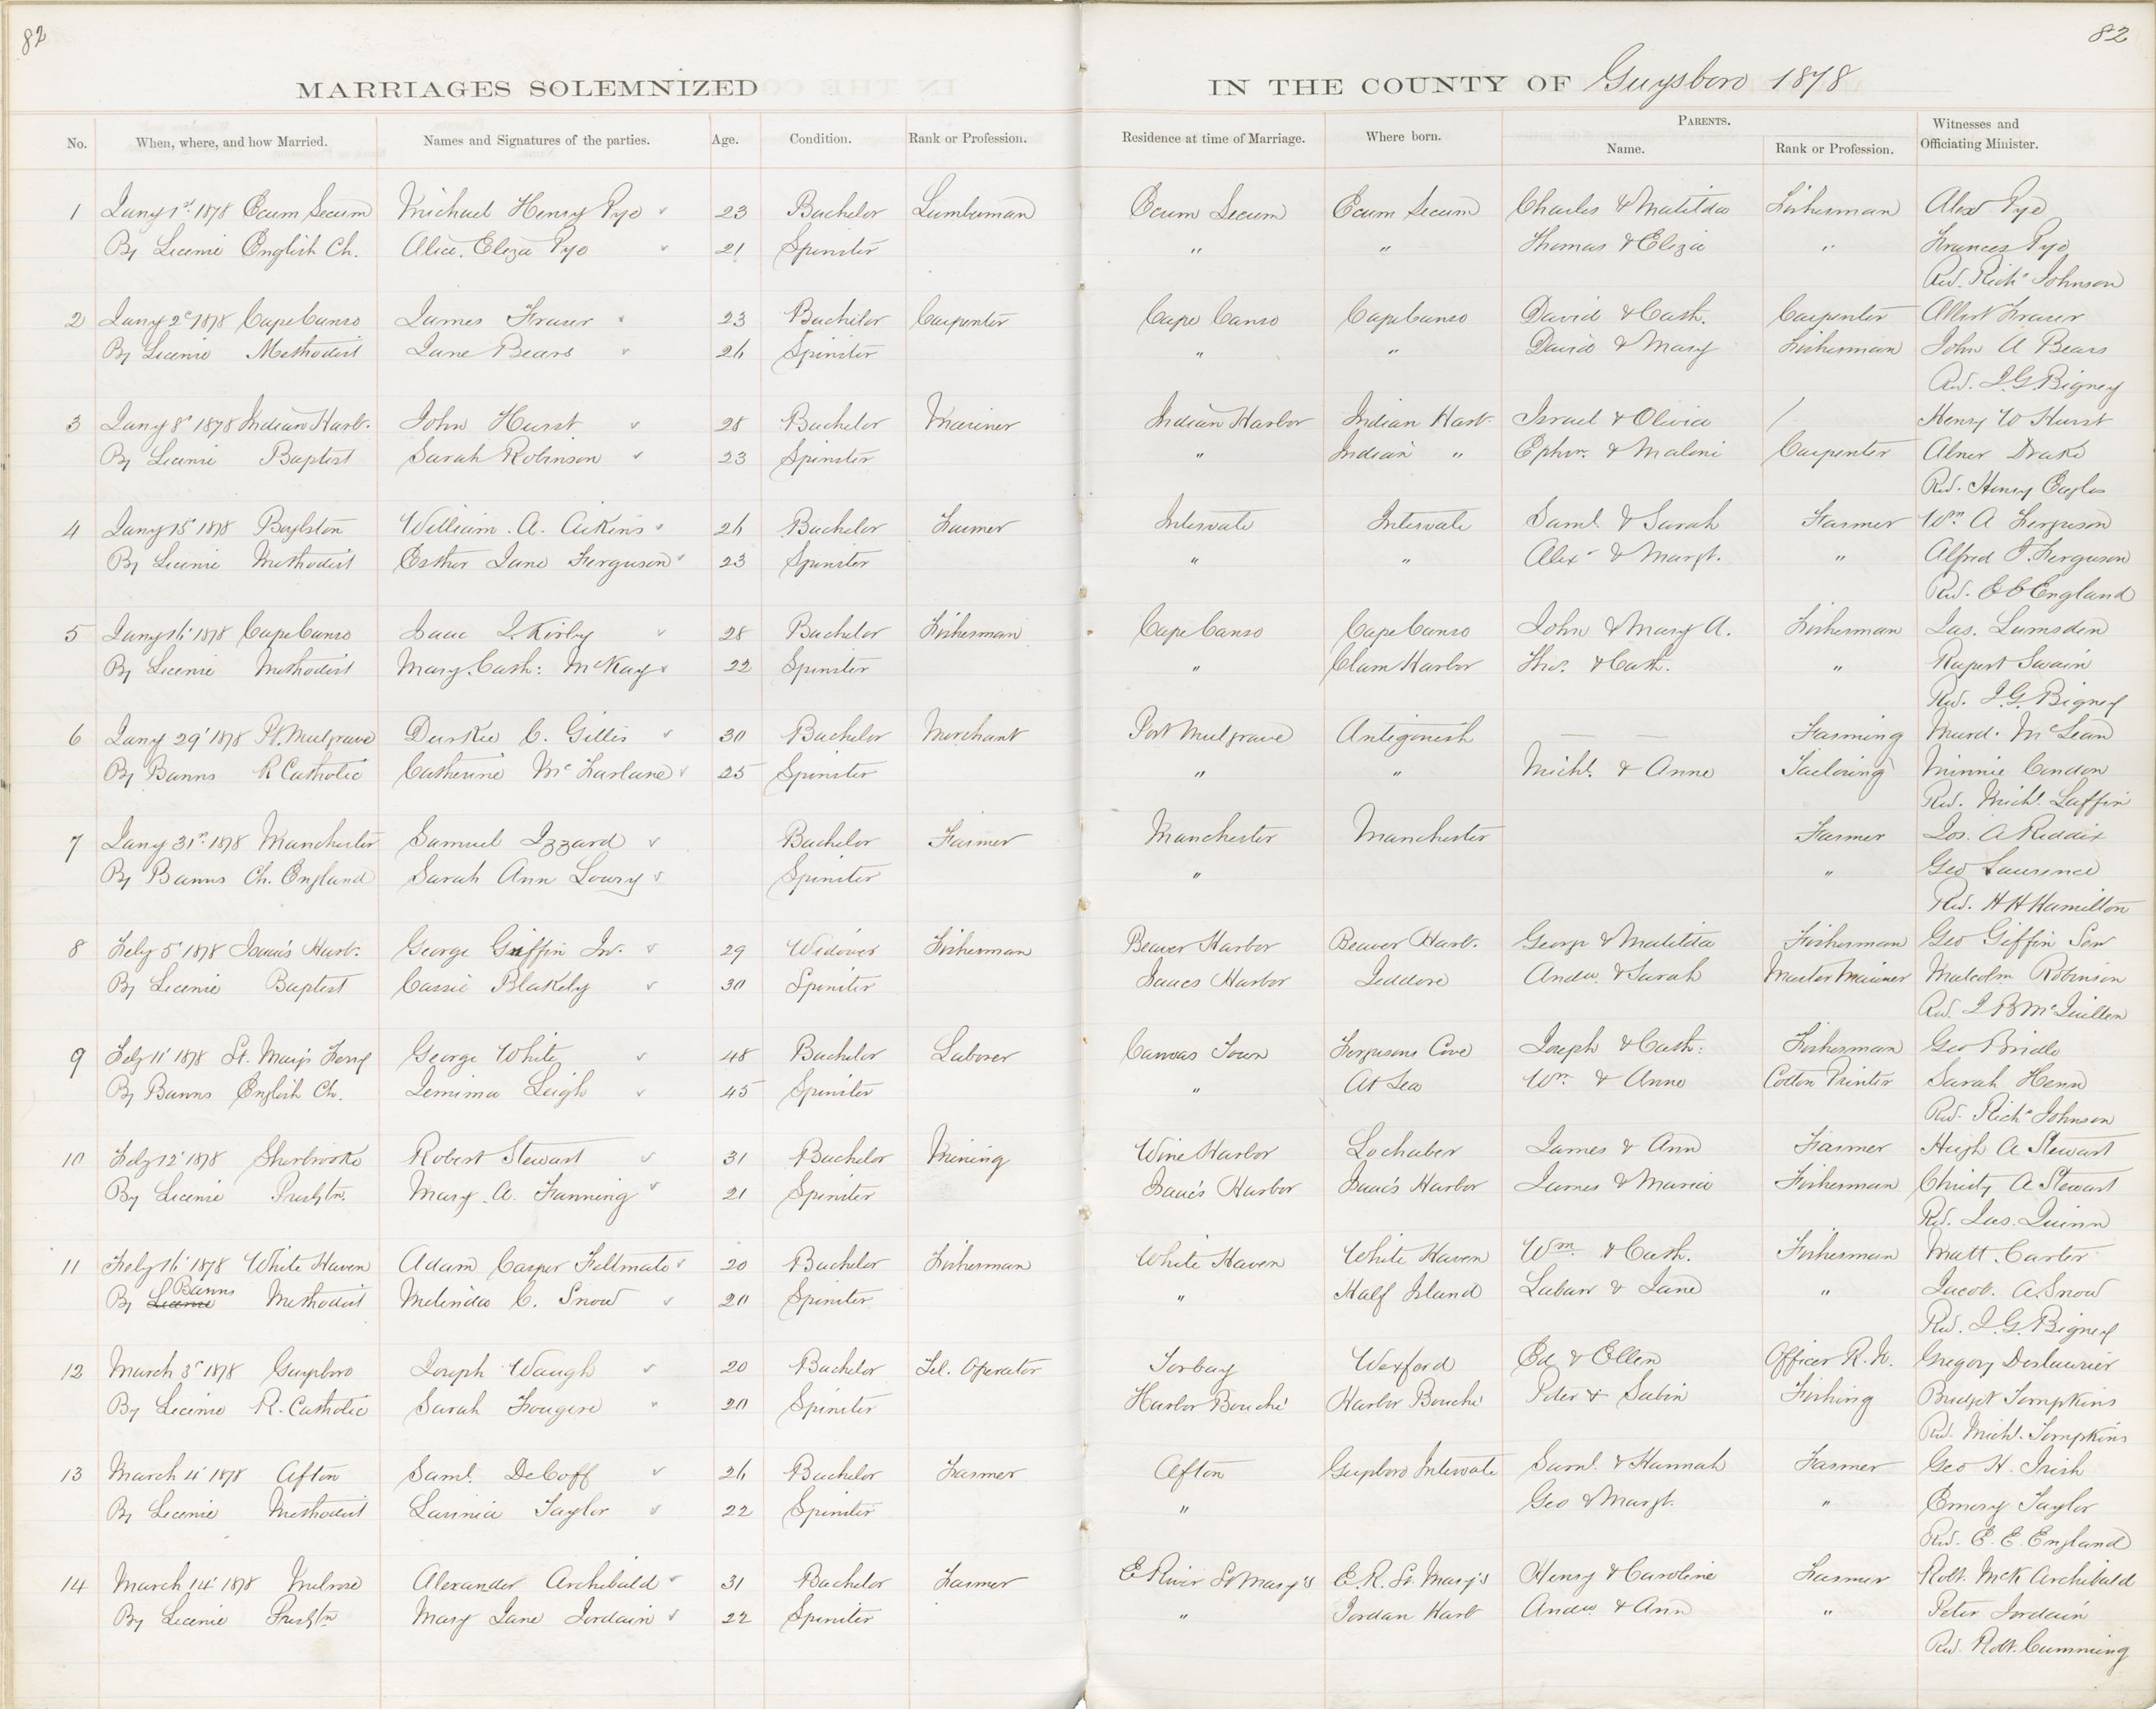 82
82
MARRIAGES SOLEMNIZED IN THE COUNTY OF Guysboro 1878
No. When, where, and how Married. Names and Signatures of the parties. Age. Condition. Rank or Profession. Residence at time of Marriage. Where born. PARENTS. Name. Rank or Profession. Witnesses and Officiating Minister.
1 Jany 1st 1878 Ecum Secum Michael Henry Pye 23 Bachelor Lumberman Ecum Secum Ecum Secum Charles & Matilda Fisherman Alex Pye
By License English Ch. Alice Eliza Pye 21 Spinster " " Thomas & Eliza " Frances Pye
Rev. Richd Johnson
2 Jany 2d 1878 Cape Canso James Fraser 23 Bachelor Carpenter Cape Canso Cape Canso David & Cath. Carpenter Albert Fraser
By License Methodist Jane Bears 26 Spinster " " David & Mary Fisherman John A Bears
Rev. J. G. Bigney
3 Jany 8' 1878 Indian Harb. John Hurst 28 Bachelor Mariner Indian Harbor Indian Harb. Israel & Olivia / Henry W Hurst
By License Baptist Sarah Robinson 23 Spinster " Indian " Ephm. & Malini Carpenter Abner Drake
Rev. Henry Eagles
4 Jany 15' 1878 Boylston William A. Aikins 26 Bachelor Farmer Intervale Intervale Saml. & Sarah Farmer Wm A Ferguson
By License Methodist Esther Jane Ferguson 23 Spinster " " Alexr & Margt. " Alfred J. Ferguson
Rev. E E England
5 Jany 16' 1878 Cape Canso Isaac L. Kirby 28 Bachelor Fisherman Cape Canso Cape Canso John & Mary A. Fisherman Jas. Lumsden
By License Methodist Mary Cath: McKay 22 Spinster " Clam Harbor Thos. & Cath. " Rupert Swain
Rev. J. G. Bigney
6 Jany 29' 1878 Pt. Mulgrave Duskee C. Gillis 30 Bachelor Merchant Port Mulgrave Antigonish — — Farming Murd. McLean
By Banns R Catholic Catherine McFarlane 25 Spinster " " Michl. & Anne Tailoring Minnie Condon
Rev. Michl. Laffin
7 Jany 31st 1878 Manchester Samuel Izzard Bachelor Farmer Manchester Manchester Farmer Jos. A Reddix
By Banns Ch. England Sarah Ann Lowry Spinster " " Geo Laurence
Rev. H H Hamilton
8 Feby 5' 1878 Isaac's Harb. George Giffin Jr. 29 Widower Fisherman Beaver Harbor Beaver Harb. George & Matilda Fisherman Geo Giffin Sen
By License Baptist Cassie Blakely 30 Spinster Isaacs Harbor Jeddore Andw. & Sarah Master Mariner Malcolm Robinson
Rev. J B McQuillen
9 Feby 11' 1878 St. Mary's Ferry George White 48 Bachelor Laborer Canvas Town Fergusons Cove Joseph & Cath: Fisherman Geo Bridle
By Banns English Ch. Jemima Leigh 45 Spinster " At Sea Wm. & Anne Cotton Printer Sarah Henn
Rev. Richd Johnson
10 Feby 12' 1878 Sherbrooke Robert Stewart 31 Bachelor Mining Wine Harbor Lochaber James & Ann Farmer Hugh A Stewart
By License Presbtn. Mary A. Fanning 21 Spinster Isaac's Harbor Isaac's Harbor James & Maria Fisherman Christy A Stewart
Rev. Jas. Quinn
11 Feby 16' 1878 White Haven Adam Casper Feltmate 20 Bachelor Fisherman White Haven White Haven Wm. & Cath. Fisherman Matt. Carter
By License Banns Methodist Melinda C. Snow 20 Spinster " Half Island Laban & Jane " Jacob. A. Snow
Rev. J. G. Bigney
12 March 3d 1878 Guysboro Joseph Waugh 20 Bachelor Tel. Operator Torbay Wexford Ed & Ellen Officer R. N. Gregory Deslaurier
By License R. Catholic Sarah Fougere 20 Spinster Harbor Bouché Harbor Bouche Peter & Sabin Fishing Bridget Tompkins
Rev. Michl. Tompkins
13 March 4' 1878 Afton Saml. DeCoff 26 Bachelor Farmer Afton Guysboro Intervale Saml. & Hannah Farmer Geo H. Irish
By License Methodist Lavinia Taylor 22 Spinster " Geo & Margt. " Emery Taylor
Rev. E. E. England
14 March 14' 1878 Melrose Alexander Archibald 31 Bachelor Farmer E River St Mary's E. R. St. Mary's Henry & Caroline Farmer Robt. McK Archibald
By License Presbtn Mary Jane Jordain 22 Spinster " Jordan Harb Andw & Ann " Peter Jordain
Rev. Robt. Cumming